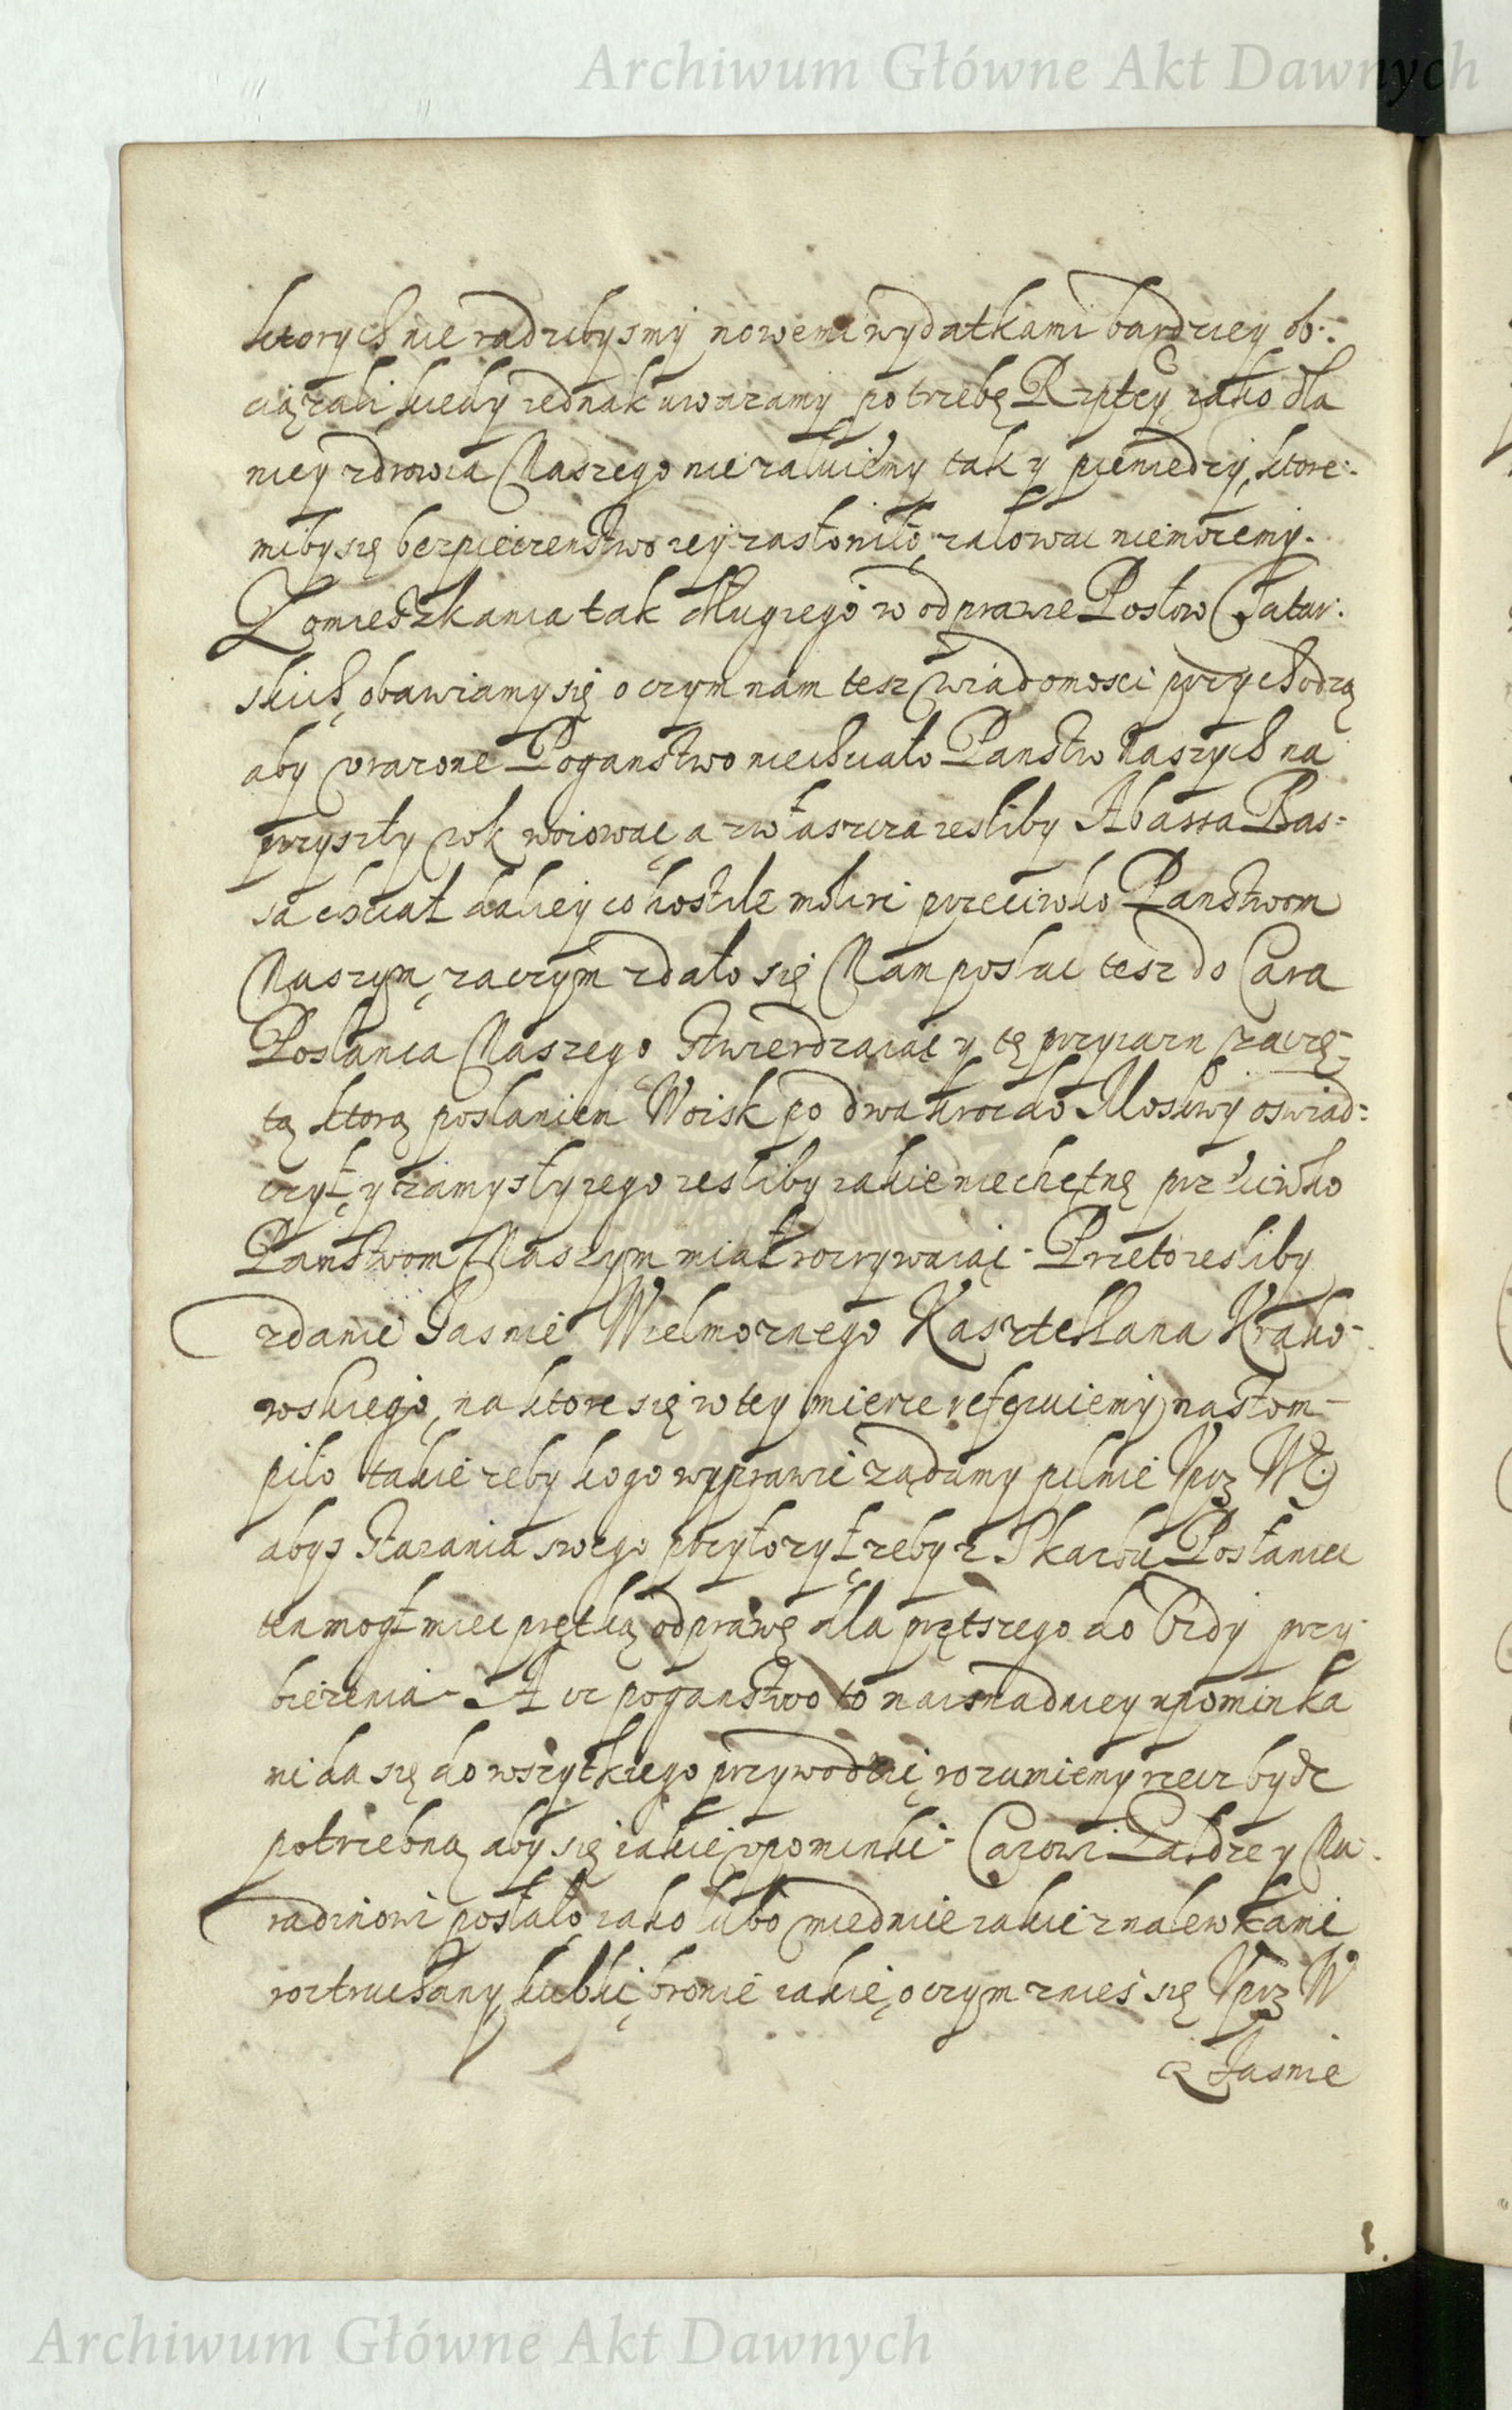 Archiwum Główne Akt Dawnych
ktorych nie radzibysmy nowemi wydatkami bardziey ob:
ciązali kiedy iednak uwazamy potrzebę Rzptey iako dla
niey zdrowia Naszego nie załuiemy tak y pieniedzy, ktore:
mi by się bezpieczenstwo iey zasłoniło, załowac niemozemy.
Z omieszkania tak długiego w odprawie Posłow Tatar:
skich, obawiamy się o czym nam tesz wiadomosci przychodzą
aby vrazone Poganstwo niechciało Panstw Naszych na
przyszły rok woiowac, a zwłaszcza iesliby Abassa Bas:
sa chciał daliey co hostile moliri przeciwko Panstwom
Naszym, zaczym zdało się Nam posłac tesz do Cara
Posłanca Naszego stwierdzaiąc y tę przyiazn zaczę:
tą ktorą posłaniem Woisk po dwakroc do Moskwy oswiad:
czył, y zamysły iego iesliby iakie niechętnę przeciwko
Panstwom Naszym miał rozrywaiąc. Przeto iesliby
zdanie Jasnie Wielmoznego Kasztellana Krako:
wskiego, na ktore się w tey mierze referuiemy, nastom:
piło takie zeby kogo wyprawic ządamy pilnie Uprz Wć
abys starania swego przyłozył, zeby z Skarbu Posłaniec
ten mogł miec prętką odprawę dla prętszego do Ordy przy
biezenia. A iz poganstwo to naisnadniey upominka
mi da się do wszytkiego przywodzic, rozumiemy rzecz bydz
potrzebną, aby się iakie vpominki Carowi Gałdze y Nu:
radinowi posłało, iako lubo miednice iakie z nalewkami
roztruchany, kubki, bronie iakie, o czym znies się Uprz W
z Jasnie
Archiwum Główne Akt Dawnych